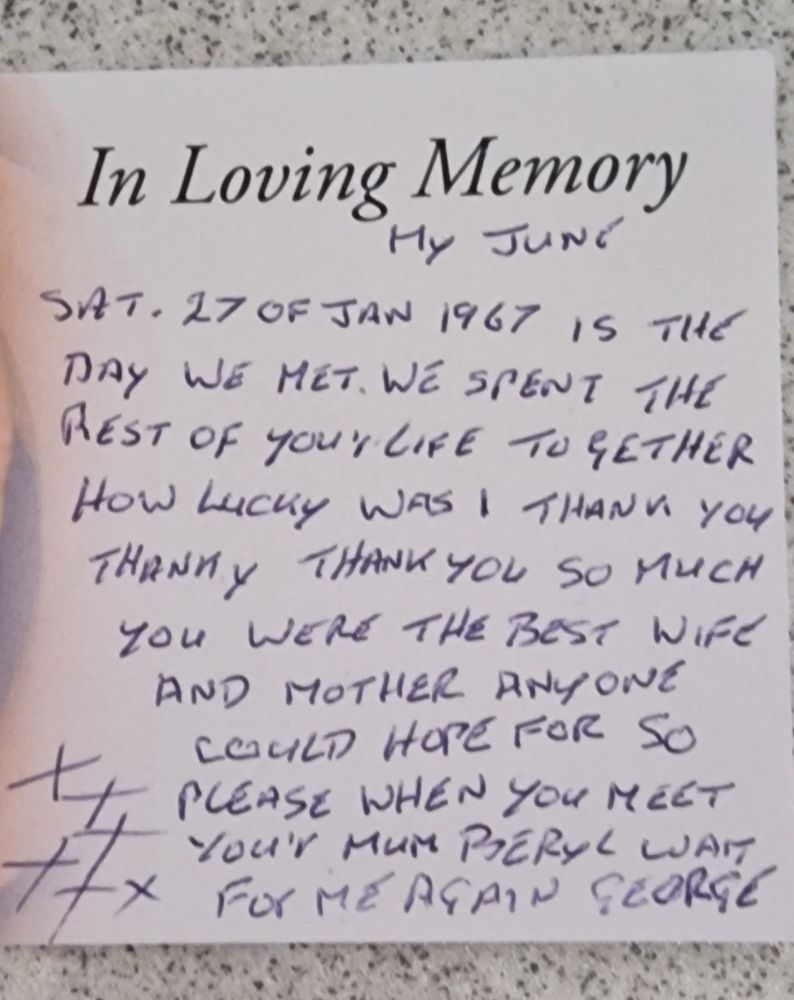 In Loving Memory
My JUNE
SAT. 27 OF JAN 1967 IS THE
DAY WE MET. WE SPENT THE
REST OF YOU'r LIFE TOGETHER
HOW LUCKY WAS I THANK YOU
THANKY THANK YOU SO MUCH
YOU WERE THE BEST WIFE
AND MOTHER ANYONE
COULD HOPE FOR SO
PLEASE WHEN YOU MEET
YOU'r MUM BERYL WAIT
FOr ME AGAIN GEORGE